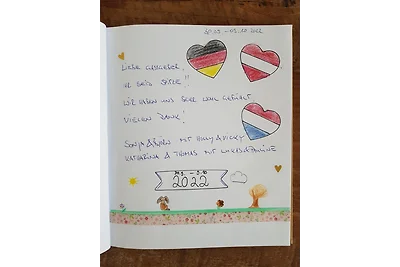 30.09 - 03.10.2022
LIEBE GASTGEBER,
IHR SEID SPITZE!!
WIR HABEN UNS SEHR WOHL GEFÜHLT
VIELEN DANK!
SONJA & BJÖRN MIT HOLLY & VICKY
KATHARINA & THOMAS MIT LUKAS & PAULINE
2022